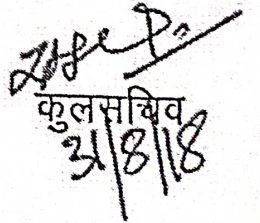 कुलसचिव
31/8/18